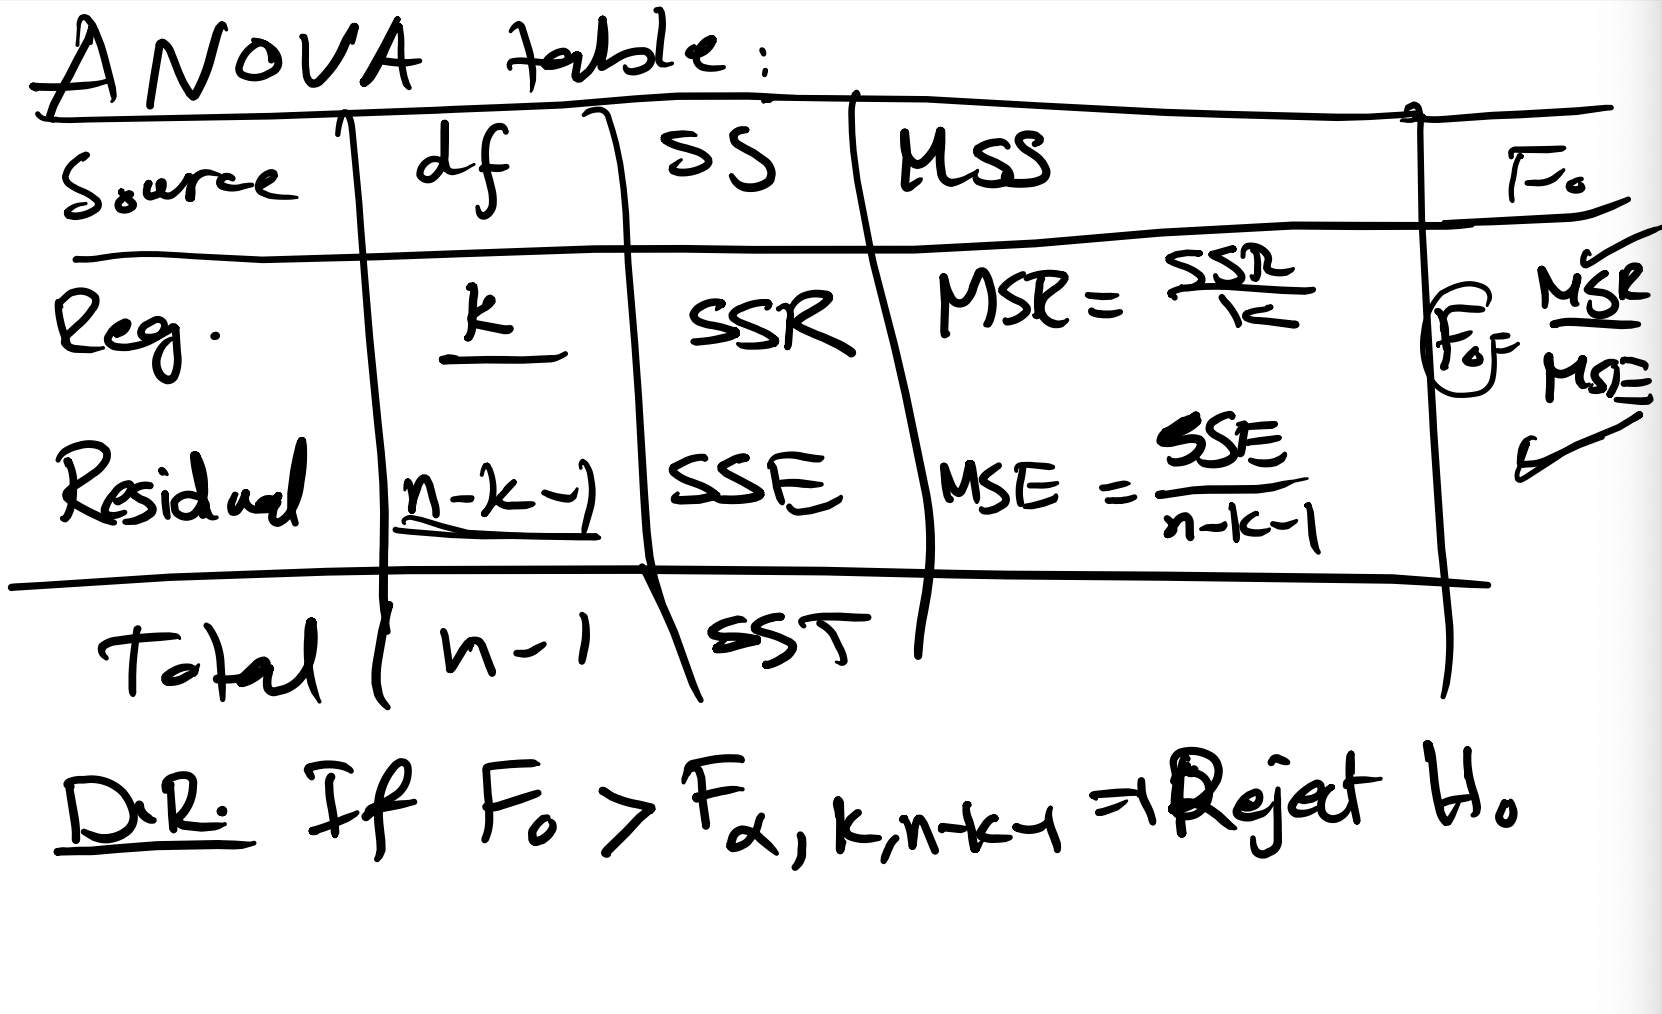 ANOVA table:
Source df SS MSS F₀
Reg. k SSR MSR = SSR/k F₀ = MSR/MSE
Residual n-k-1 SSE MSE = SSE/n-k-1
Total n-1 SST
DR. If F₀ > Fα, k, n-k-1 → Reject H₀